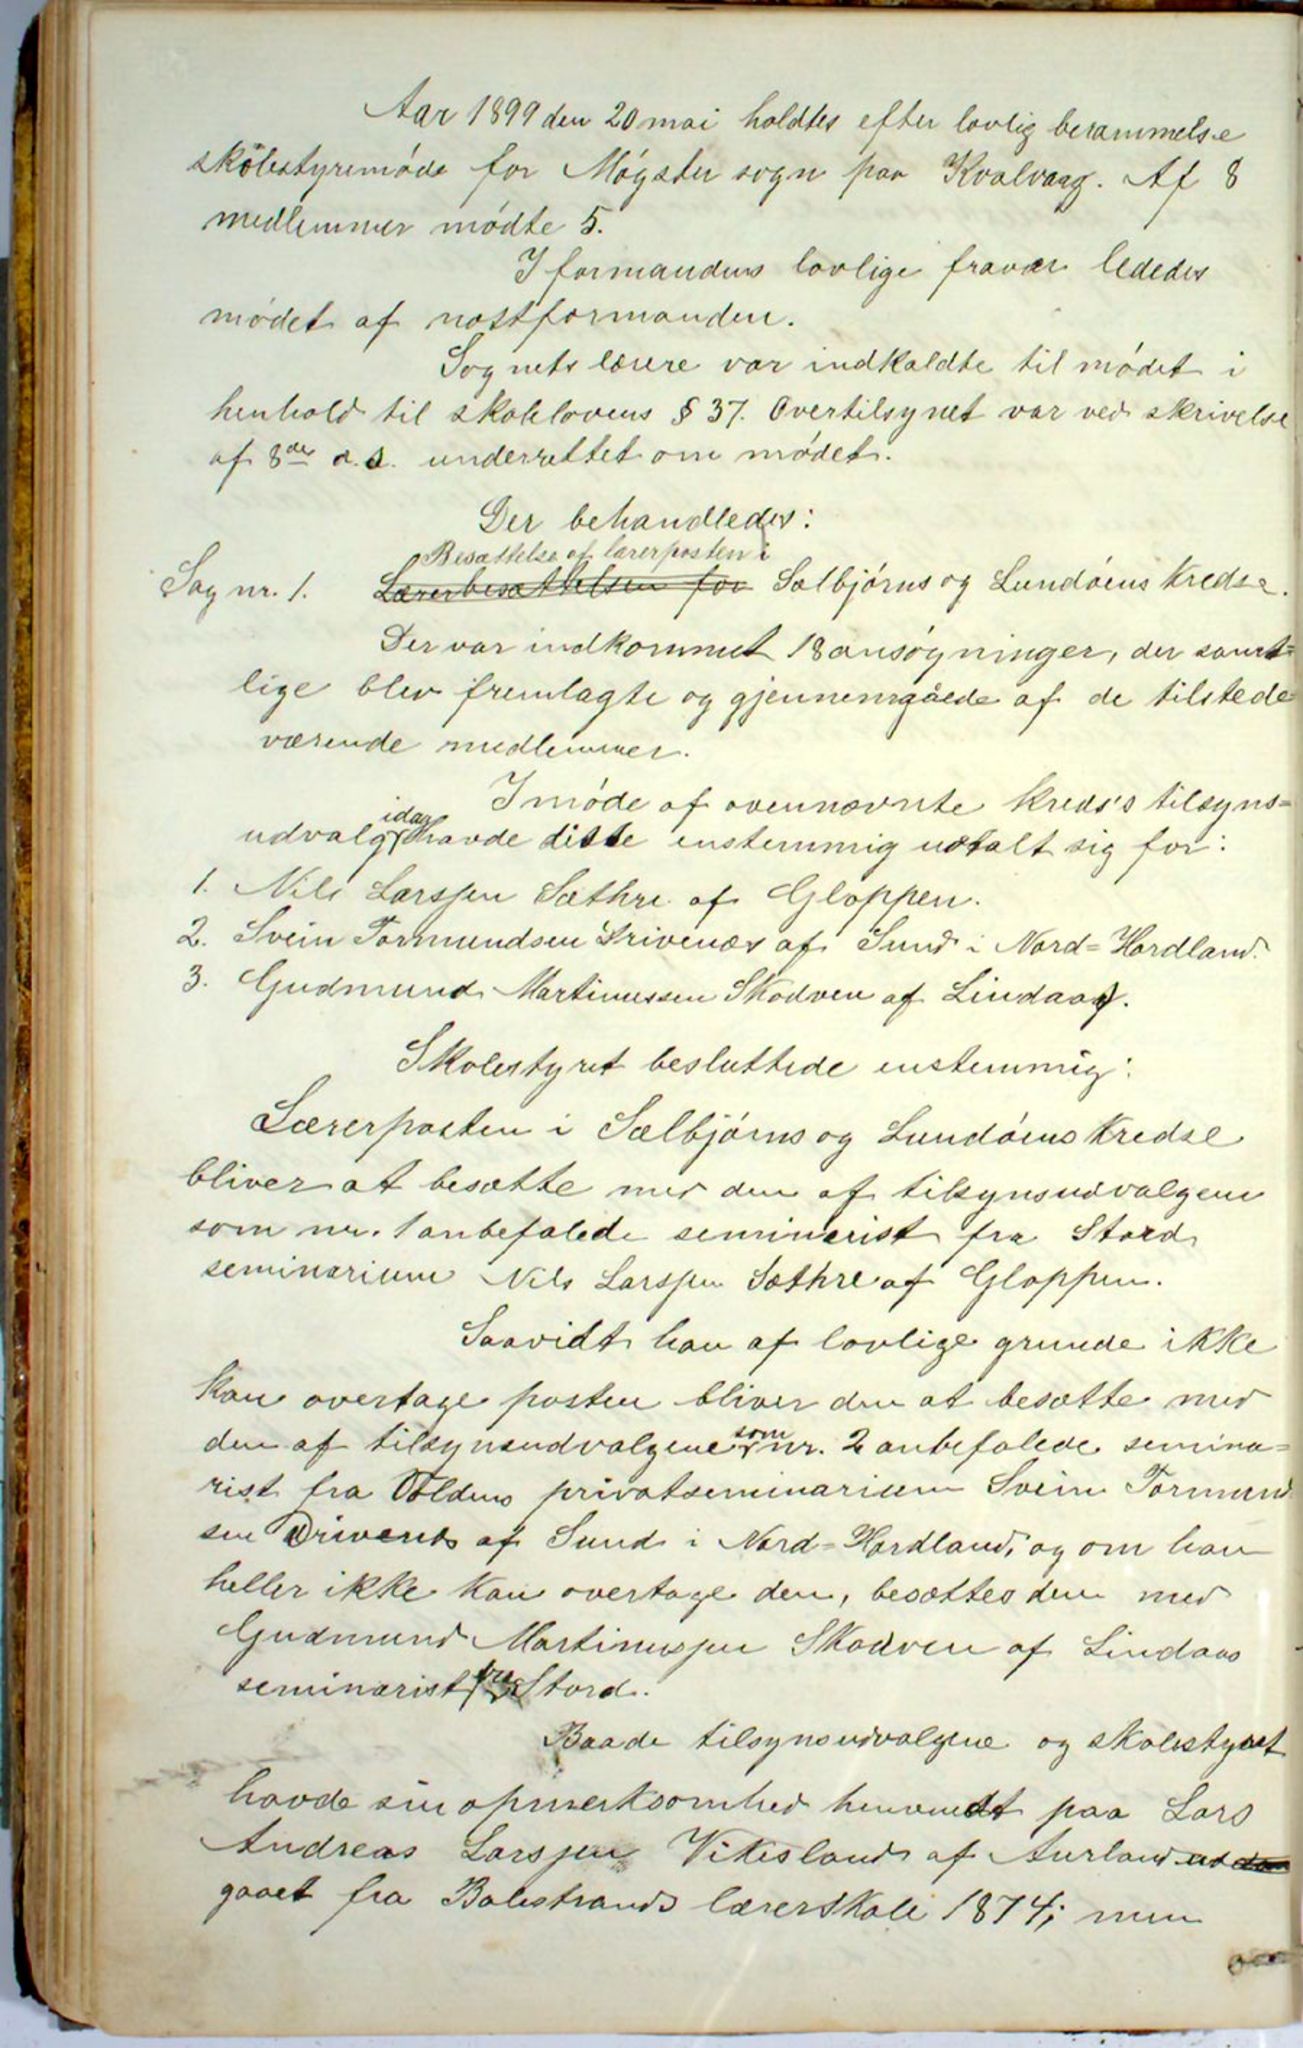 Aar 1899 den 20 mai holdtes efter lovlig berammelse
skolestyremøde for Møgster sogn paa Kvalvaag. Af 8
medlemmer mødte 5.
I formandens lovlige fravær lededes
mødet af næstformanden.
Sognets lærere var indkaldte til mødet i
henhold til skolelovens § 37. Overtilsynet var ved skrivelse
af 8de d.s. underrettet om mødet.
Der behandledes:
Besættelse af lærerposten i
Sag nr. 1. Lærerbesættelsen for Sælbjørns og Lundøens Kredse.
Der var indkommet 18 ansøgninger, der samt=
lige blev fremlagte og gjennemgåede af de tilstede
værende medlemmer.
I møde af ovennævnte Kreds's tilsyns=
idag
udvalg havde disse enstemmig udtalt sig for:
1. Nils Larssen Sæthre af Gloppen.
2. Svein Tormundsen Drivenes af Sund i Nord=Hordland.
3. Gudmund Martinussen Skodven af Lindaas.
Skolestyret besluttede enstemmig:
Lærerposten i Sælbjørns og Lundøens Kredse
bliver at besætte med den af tilsynsudvalgene
som nr. 1 anbefalede seminarist fra Stord
seminarium Nils Larssen Sæthre af Gloppen.
Saavidt han af lovlige grunde ikke
kan overtage posten bliver den at besætte med
den af tilsynsudvalgene som nr. 2 anbefalede semina=
rist fra Voldens privatseminarium Svein Tormund
sen Drivenes af Sund i Nord=Hordland, og om han
heller ikke kan overtage den, besættes den med
Gudmund Martinussen Skodven af Lindaas
seminarist fra Stord.
Baade tilsynsudvalgene og skolestyret
havde sin opmerksomhed henvendt paa Lars
Andreas Larssen Vikesland af Aurland ud
gaaet fra Balestrands lærerskole 1874; men